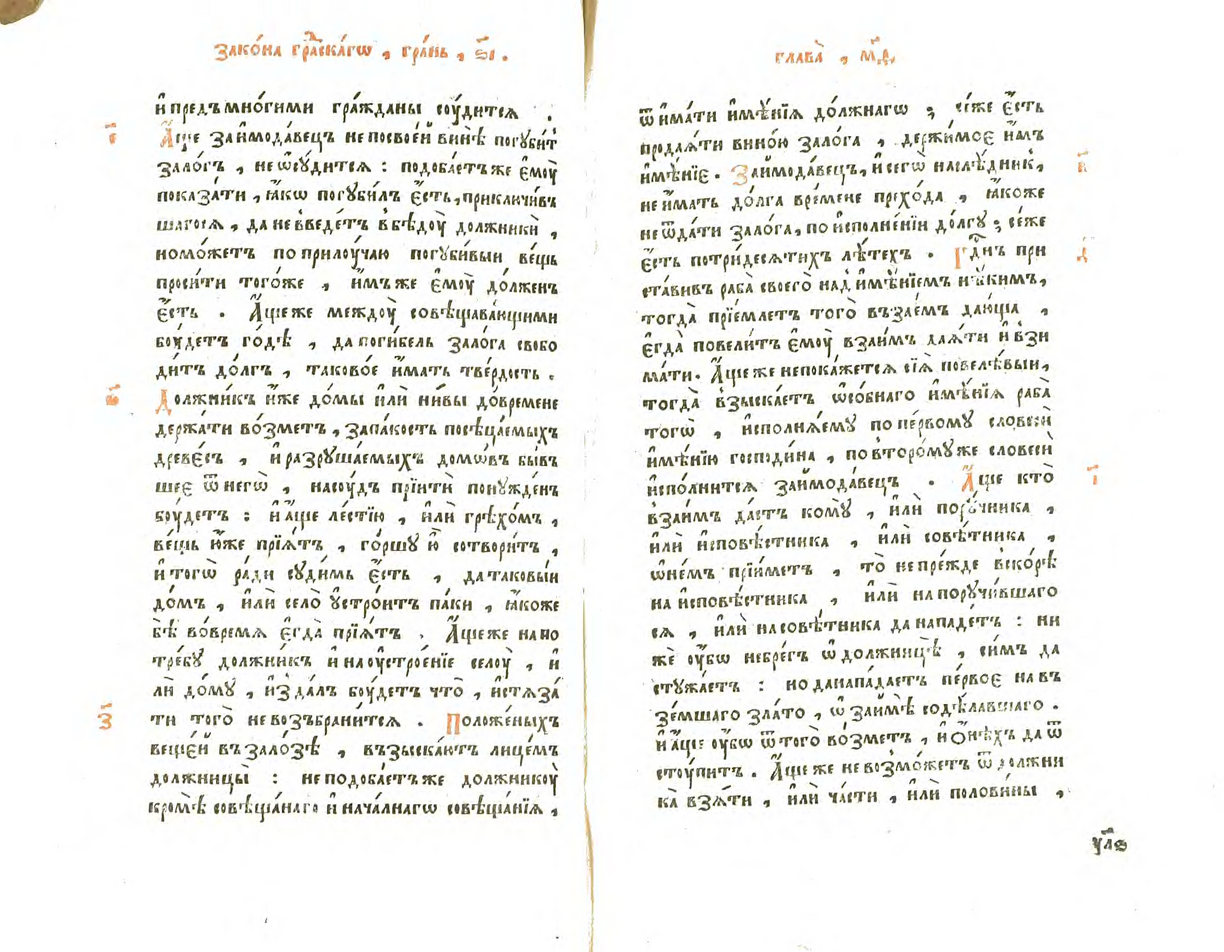 Зако́на гра́дскагѡ , гра́нь , ѕ҃і .
и҆ предъ мно́гими гра́жданы сѹ́дитсѧ .
є҃
А҆́ще заимода́вецъ не посвое́й винѣ̀ погꙋби́т
зало́гъ , не ѿсѹ́дитсѧ : подоба́етъ же є҆мѹ̀
показа́ти , ꙗ҆́кѡ погꙋби́лъ є҆́сть, приключи́в
шагосѧ , да не введе́тъ в бѣдѹ̀ должникѝ ,
но мо́жетъ по прилѹ́чаю погꙋби́выи ве́щь
проси́ти того́же , и҆́мъ же є҆мѹ̀ до́лженъ
є҆́сть . А҆́ще же междѹ̀ совѣщава́ющими
бѹ́детъ го́дѣ , да поги́бель зало́га свобо
ди́тъ до́лгъ , таково́е и҆́мать тве́рдость .
ѕ҃
Должни́къ и҆́же до́мы и҆лѝ ни́вы до́времене
держа́ти во́змет , за па́кость посѣца́емыхъ
древе́съ , и҆ разрꙋша́емыхъ домѡ́въ бы́в
шеє ѿ негѡ̀ , на сѹ́дъ прїитѝ понꙋжде́нъ
бѹ́детъ : и҆ а҆́ще ле́стїю , и҆лѝ грѣхо́мъ ,
ве́щь ю҆́же прїѧ́тъ , го́ршꙋ ю҆̀ сотвори́тъ ,
и҆ тогѡ̀ ра́ди сꙋди́мь є҆́сть , да таковы́и
до́мъ , и҆лѝ село̀ ꙋ҆стро́итъ па́ки , ꙗ҆́коже
бѣ̀ во́времѧ є҆гда̀ прїѧ́тъ . А҆́ще же на по
тре́бꙋ должни́къ и҆ на ѹ҆строе́нїе селѹ̀ , и҆
лѝ до́мꙋ , и҆зда́лъ бѹ́детъ что̀ , и҆стѧза́
ти того̀ не возбрани́тсѧ . Положе́ныхъ
з҃
веще́й въ зало́зѣ , възыска́ютъ лице́мъ
должницы̀ : не подоба́етъ же должникѹ̀
кромѣ̀ совѣща́наго и҆ нача́лнагѡ совѣща́нїѧ ,
глава̀ , м҃д.
ѿ и҆ма́ти и҆мѣ́нїѧ до́лжнагѡ ; се́же є҆́сть
продаѧ́ти вино́ю зало́га , держи́мое и҆́мъ
и҆мѣ́нїе . Заимода́вецъ, и҆ сегѡ̀ наслѣ́дник,
и҃
не и҆́мать до́лга вре́мене прехо́да , ꙗ҆́коже
не ѿда́ти зало́га, по и҆сполне́нїи до́лгꙋ ; се́же
є҆́сть по три́десѧтихъ лѣ́техъ . Гдⷭ҇нъ при
д҃
ста́вивъ раба̀ своего̀ над̾ и҆мѣ́нїемъ нѣ́кимъ,
тогда̀ прїе́млетъ того̀ въ зае́мъ даю́ща ,
є҆гда̀ повели́тъ є҆мѹ̀ вза́имъ даѧ́ти и҆ взи
ма́ти. А҆́ще же непока́жетсѧ сїѧ̀ повелѣ́выи,
тогда̀ взы́скаетъ ѡ҆со́бнаго и҆мѣ́нїѧ раба̀
тогѡ̀ , и҆сполнѧ́емꙋ по пе́рвому словесѝ
и҆мѣ́нїю господи́на , по второ́му же словесѝ
и҆спо́лнитсѧ заимода́вецъ . А҆́ще кто̀
і҃
вза́имъ да́стъ комꙋ̀ , и҆лѝ порꙋ́чника ,
и҆лѝ и҆сповѣ́стника , и҆лѝ совѣ́тника ,
ѡ҆ не́мъ прїи́метъ , то̀ не пре́жде вско́рѣ
на и҆сповѣ́стника , и҆лѝ на порꙋчи́вшаго
сѧ , и҆лѝ на совѣ́тника да нападе́тъ : ни
жѐ ѹ҆́бѡ небре́гъ ѡ҆ должницѣ̀ , си́мъ да
стꙋжа́етъ : но да напада́етъ пе́рвое на въ
зе́мшаго зла́то , ѡ҆ за́имѣ содѣ́лавшаго .
и҆ а҆́ще ѹ҆́бѡ ѿ того̀ во́зметъ , и҆ ѻ҆нѣ́хъ да ѿ
стѹ́питъ . А҆́ще же не возмо́жетъ ѿ должни
ка̀ взѧ́ти , и҆лѝ ча́сти , и҆лѝ полови́ны ,